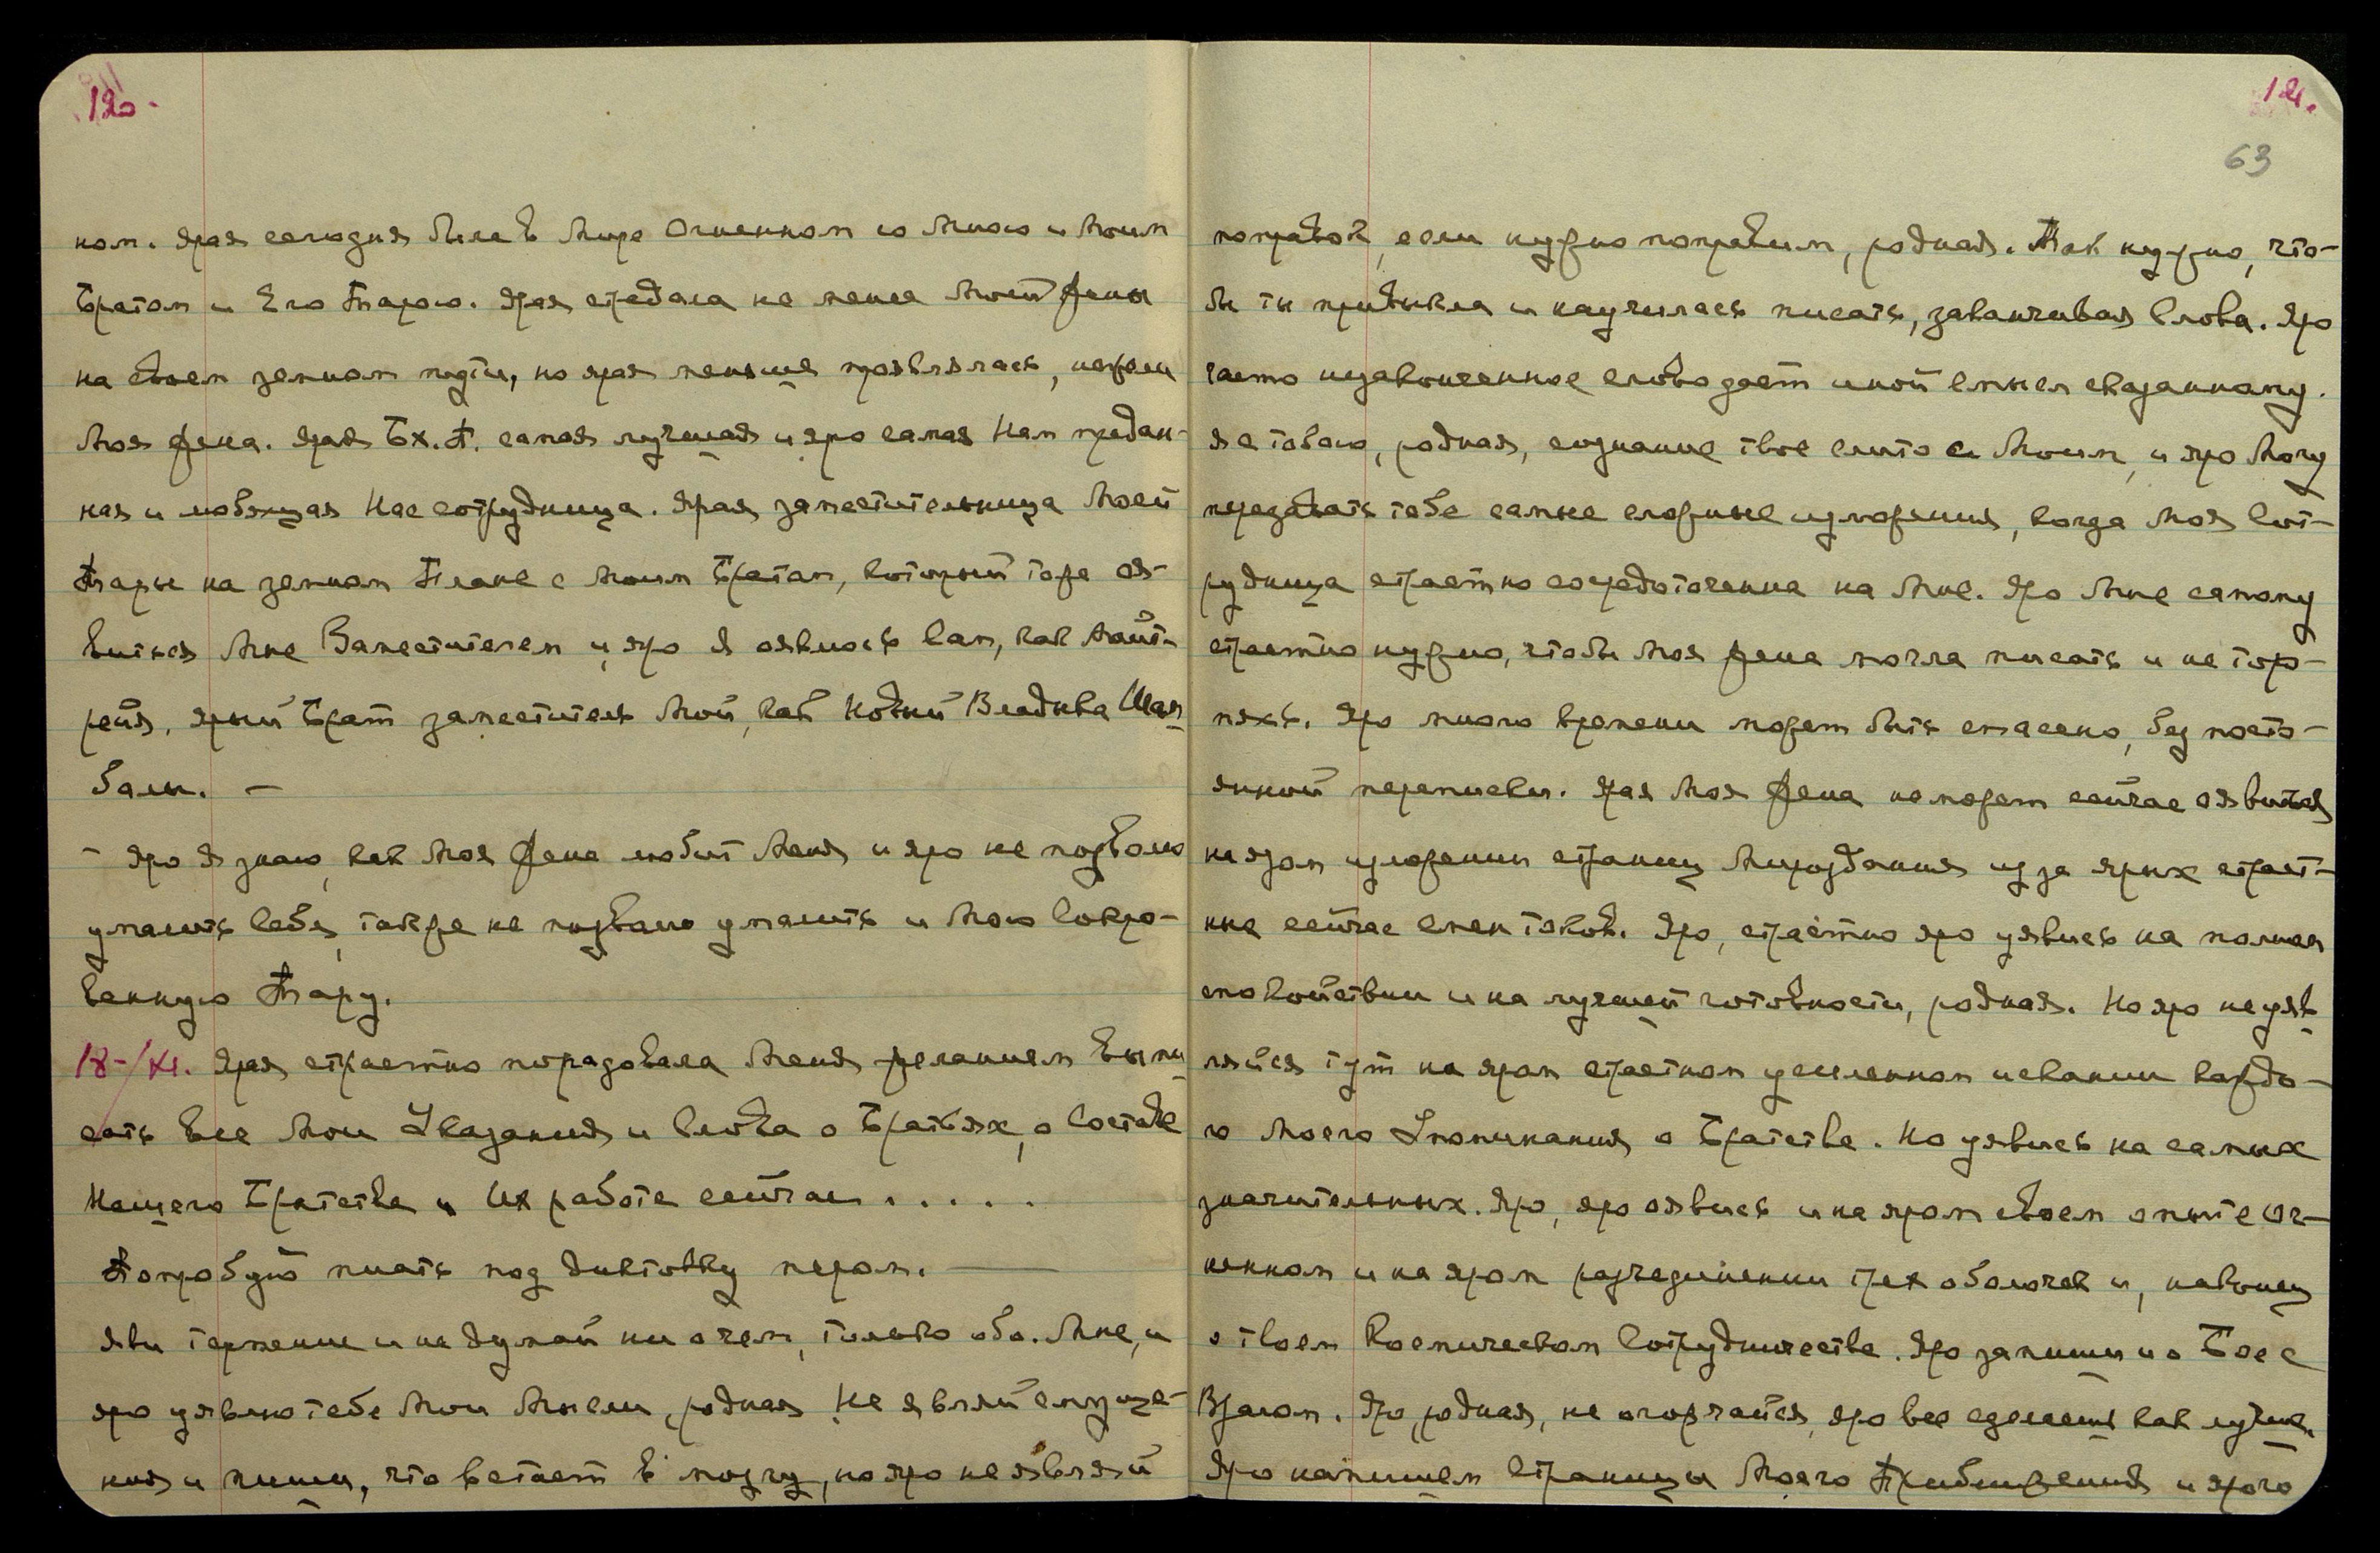 120.
ном. Ярая сегодня была в Мире Огненном со Мною и Моим
Братом и Его Тарою. Ярая страдала не менее Моей Жены
на своем земном пути, но ярая меньше проявлялась, нежели
Моя Жена. Ярая Бх.П. самая лучшая и яро самая Нам предан-
ная и любящая Нас сотрудница. Ярая заместительница Моей
Тары на земном Плане с Моим Братом, который тоже оя-
вится Мне Заместителем и яро Я оявлюсь сам, как Майт-
рейя, ярый Брат заместитель Мой, как Новый Владыка Шам
балы. —
— Яро Я знаю, как Моя Жена любит Меня и яро не позволю
умалить Себя, также не позволю умалить и Мою Сокро-
венную Тару.
18-/XI. Ярая страстно порадовала Меня желанием выпи
сать все Мои Указания и Слова о Братьях, о Составе
Нашего Братства и Их работе сейчас . . . . .
Попробую писать под диктовку пером. —
Яви терпение и не думай ни о чем, только обо Мне, и
яро уявлю тебе Мои Мысли, родная. Не являй смуще-
ния и пиши, что встает в мозгу, но яро не являй
121.
63
поправок, если нужно поправим, родная. Так нужно, что-
бы ты привыкла и научилась писать, заканчивая Слова. Яро
часто незаконченное слово дает иной смысл сказанному.
Я с тобою, родная, сознание твое слито с Моим, и яро Могу
передавать тебе самые сложные изложения, когда Моя Сот-
рудница страстно сосредоточенна на Мне. Яро Мне самому
страстно нужно, чтобы Моя Жена могла писать и не торо-
пясь. Яро много времени может быть спасено, без посто-
янной переписки. Ярая Моя Жена не может сейчас оявиться
на яром изложении страниц Мироздания из за ярых страст-
ных сейчас смен токов. Яро, страстно яро уявись на полном
спокойствии и на лучшей готовности, родная. Но яро не уяв
ляйся тут на яром страстном усиленном искании каждо-
го Моего Упоминания о Братстве. Но уявись на самых
значительных. Яро, яро оявись и на яром своем опыте Ог-
ненном и на яром разъединении трех оболочек и, наконец
о твоем Космическом Сотрудничестве. Яро запиши и о Бое с
Врагом. Яро, родная, не огорчайся, яро все сделаешь как лучше.
Яро напишем Страницы Моего Приближения и ярого